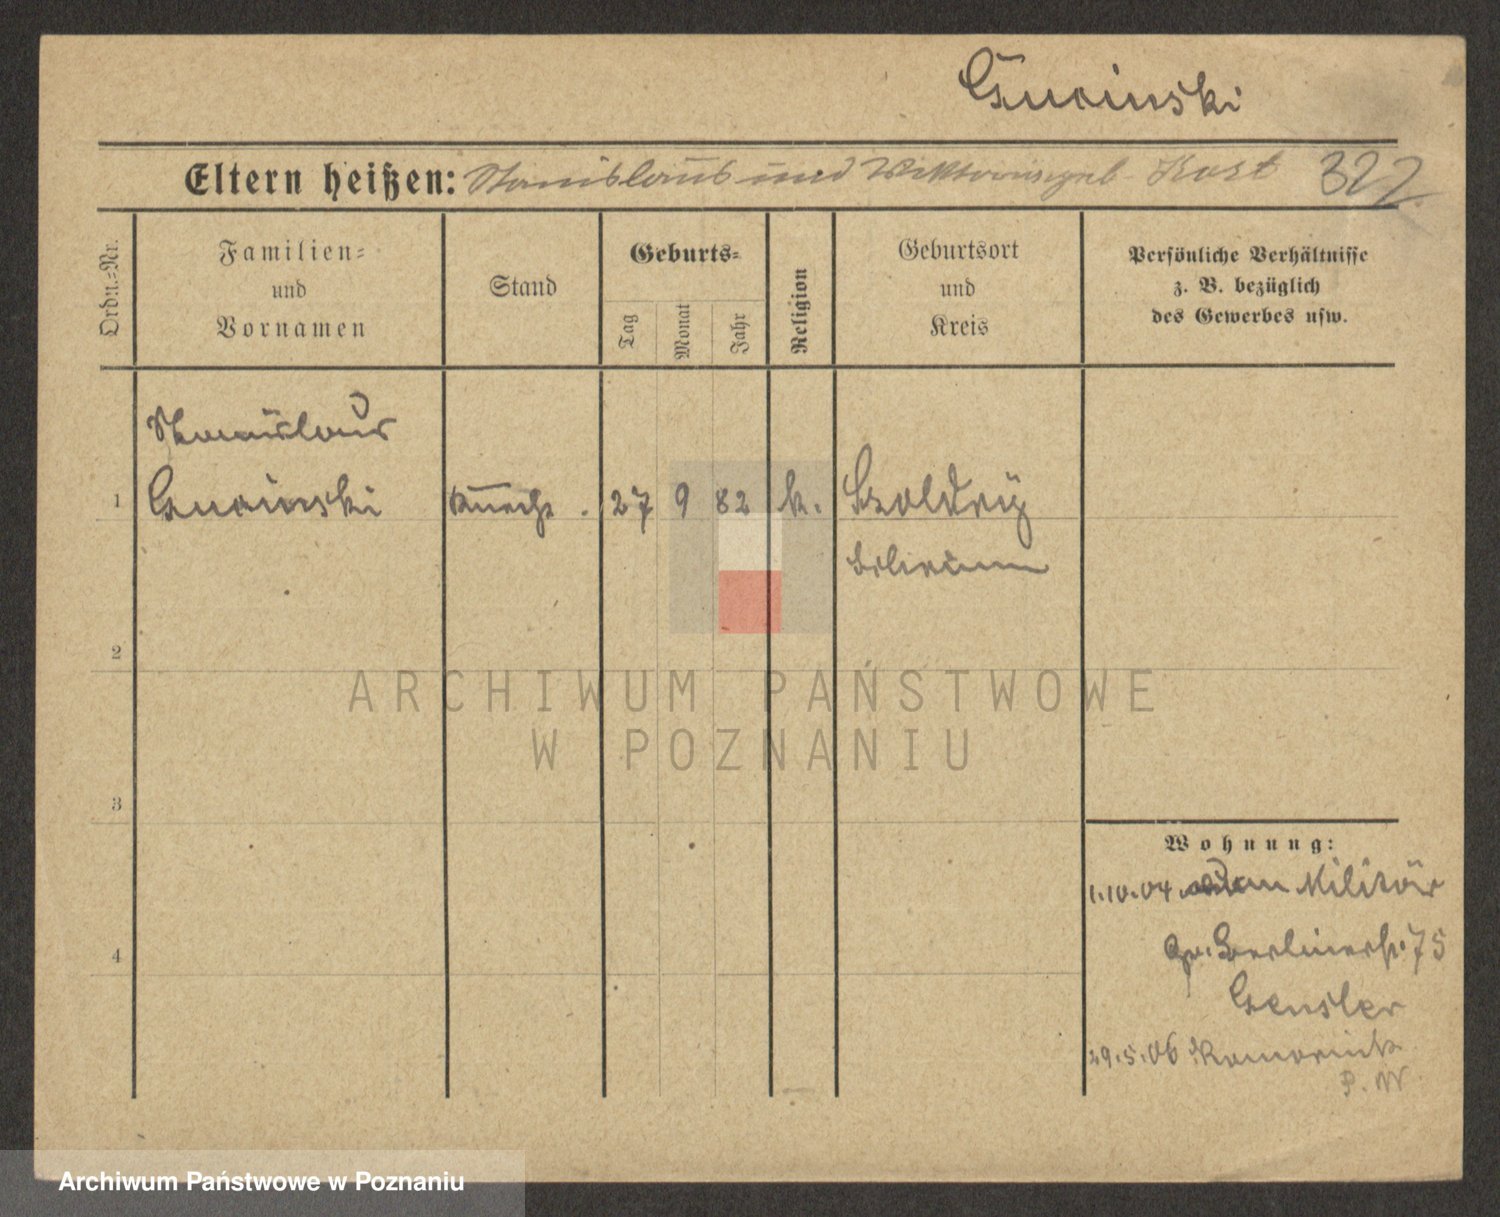 Gucinski
Eltern heißen: Stanislaus und Viktoria geb. Kost 322
Ordn.=Nr.
Familien=
und
Vornamen
Stand
Geburts=
Tag
Monat
Jahr
Religion
Geburtsort
und
Kreis
Persönliche Verhältnisse
z. B. bezüglich
des Gewerbes usw.
Stanislaus
1 Gucinski Knecht. 27 9 82 k. Szoldry
Schrimm
2
3
4
Wohnung:
1.10.04 Militär
Gr. Berlinerstr. 75
Gensler
29.5.06 Komornik
P. W
ARCHIWUM PAŃSTWOWE
W POZNANIU
Archiwum Państwowe w Poznaniu